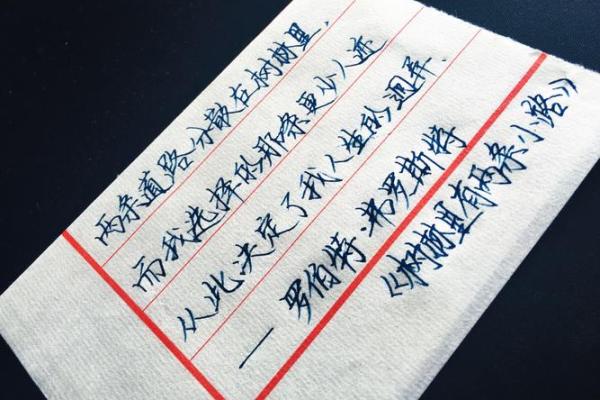 两条道路分散在树林里,
而我选择的那条更少人迹
从此决定了我人生的迥异.
— 罗伯特·弗罗斯特
《树林里有两条小路》